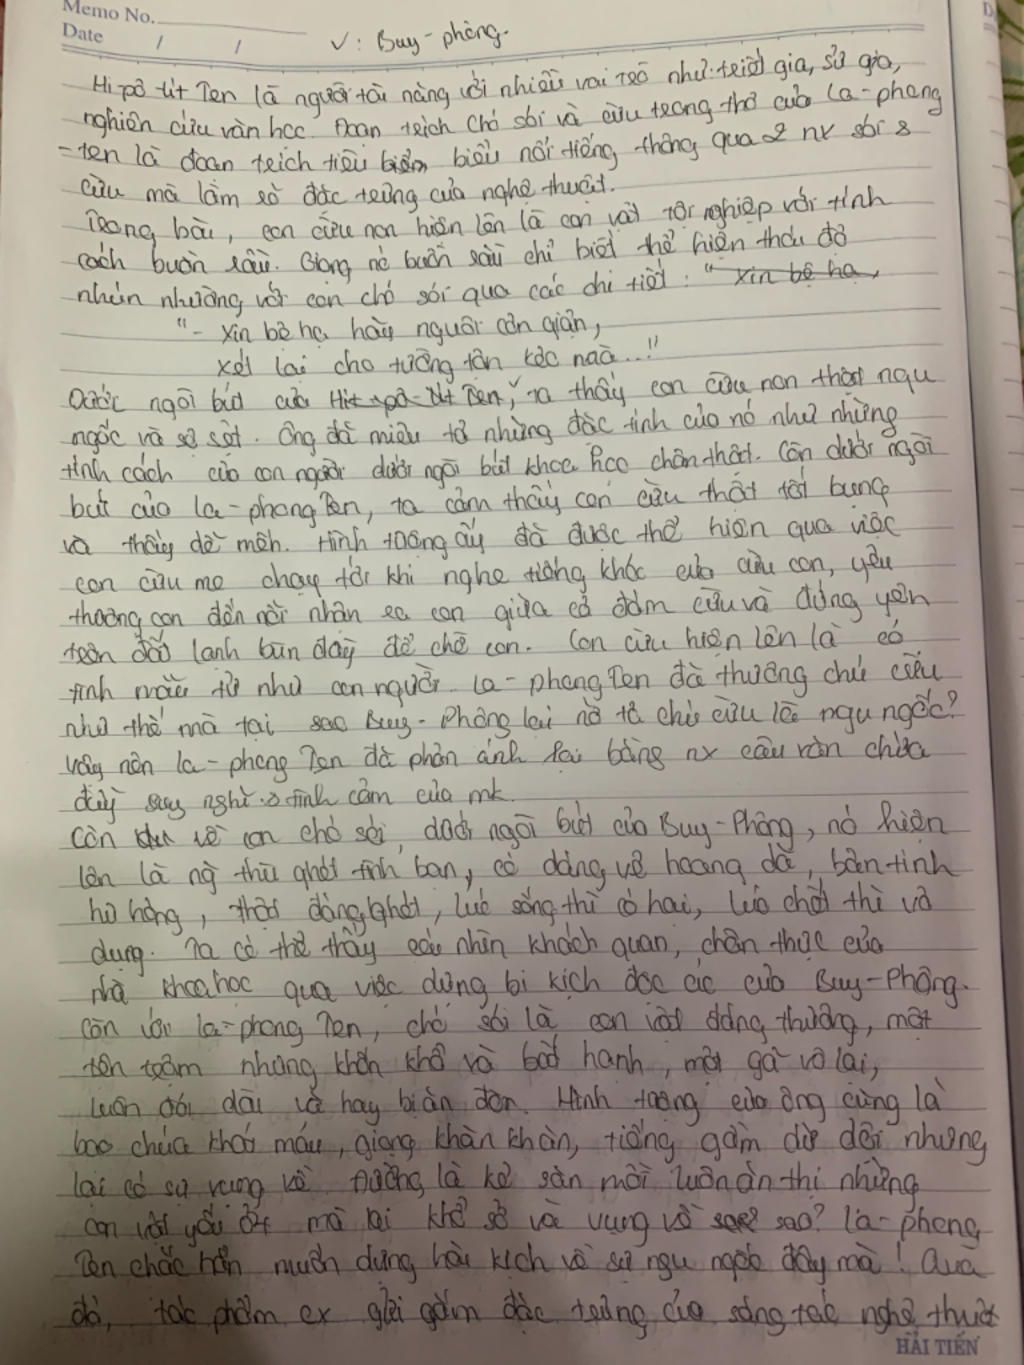 Memo No.
Date / /
V: Buy-phông.
Hi pô lit Ten là người tài năng với nhiều vai trò như: triết gia, sử gia,
nghiên cứu văn học. Đoạn trích Chó sói và cừu trong thơ của La-phong
-ten là đoạn trích tiêu biểu nổi tiếng thông qua 2 nx sói &
cừu mà làm rõ đặc trưng của nghệ thuật.
Trong bài, con cừu non hiện lên là con vật tội nghiệp với tính
cách buồn rầu. Giọng nó buồn rầu chỉ biết thể hiện thái độ
nhún nhường với con chó sói qua các chi tiết: " xin bệ hạ,
"- Xin bệ hạ hãy nguôi cơn giận,
xét lại cho tường tận kẻo nao...!"
Dưới ngòi bút của Hit-pô-lit Ten, ta thấy con cừu non thật ngu
ngốc và sợ sệt. Ông đã miêu tả những đặc tính của nó như những
tính cách của con người dưới ngòi bút khoa học chân thật. Còn dưới ngòi
bút của La-phong Ten, ta cảm thấy con cừu thật tốt bụng
và thấy dễ mến. Hình tượng ấy đã được thể hiện qua việc
con cừu mẹ chạy tới khi nghe tiếng khóc của cừu con, yêu
thương con đến nỗi nhận ra con giữa cả đám cừu và đứng yên
trên đất lạnh bùn đầy để chờ con. Con cừu hiện lên là có
tình mẫu tử như con người. La-phong Ten đã thương chú cừu
như thế mà tại sao Buy-Phông lại nỡ tả chú cừu là ngu ngốc?
Vậy nên La-phong Ten đã phản ánh lại bằng nx câu văn chứa
đầy suy nghĩ & tình cảm của mk.
Còn về con chó sói, dưới ngòi bút của Buy-Phông, nó hiện
lên là ng thù ghét tình bạn, có dáng vẻ hoang dã, bản tính
hư hỏng, thật đáng ghét, lúc sống thì có hại, lúc chết thì vô
dụng. Ta có thể thấy cái nhìn khách quan, chân thực của
nhà khoa học qua việc dựng bi kịch độc ác của Buy-Phông.
Còn với La-phong Ten, chó sói là con vật đáng thương, một
tên trộm nhưng khốn khổ và bất hạnh, một gã vô lại,
luôn đói dài và hay bị ăn đòn. Hình tượng của ông cũng là
bạo chúa khát máu, giọng khàn khàn, tiếng gầm dữ dội nhưng
lại có sự vụng về. Tưởng là kẻ săn mồi luôn ăn thịt những
con vật yếu ớt mà lại khổ sở và vụng về sao? La-phong
Ten chắc hẳn muốn dựng hài kịch về sự ngu ngốc đây mà! Qua
đó, tác phẩm ex gửi gắm đặc trưng của sáng tác nghệ thuật
HẢI TIẾN